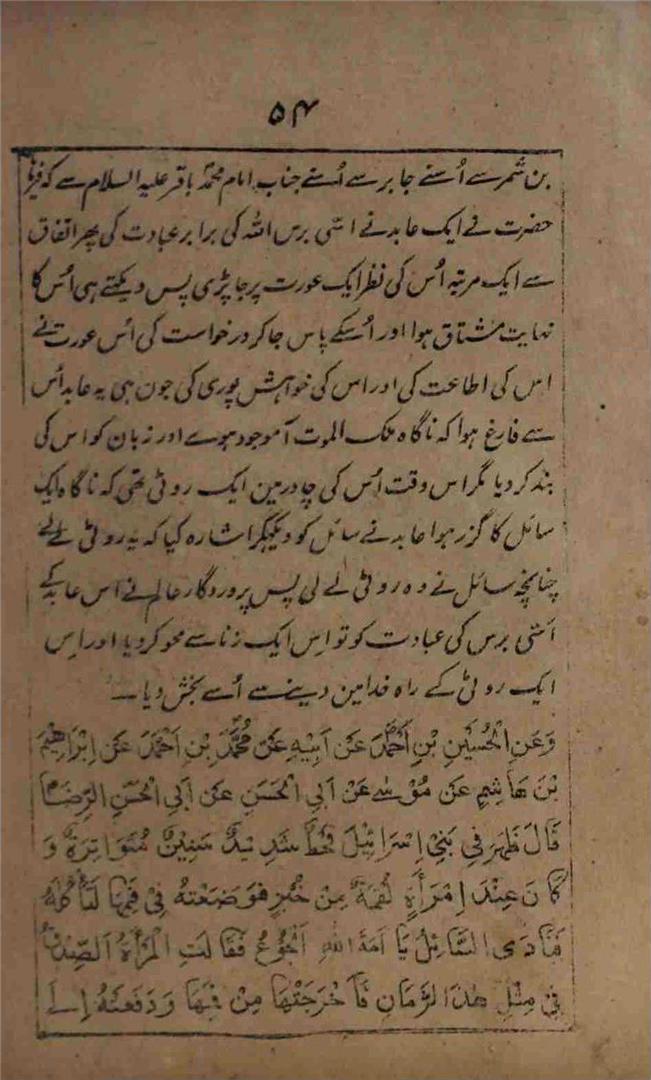 ۵۴
بن شمر سے اُسنے جابر سے اُسنے جناب امام محمد باقر علیہ السلام سے کہ فرمایا
حضرت نے ایک عابد نے اسّی برس اللہ کی برابر عبادت کی پھر اتفاق
سے ایک مرتبہ اُس کی نظر ایک عورت پر جا پڑی پس دیکھتے ہی اُس کا
نہایت مشتاق ہوا اور اُسکے پاس جا کر درخواست کی اُس عورت نے
اس کی اطاعت کی اور اس کی خواہش پوری کی جون ہی یہ عابد اُس
سے فارغ ہوا کہ ناگاہ ملک الموت آموجود ہوے اور زبان کو اس کی
بند کر دیا مگر اس وقت اُس کی چادر مین ایک روٹی تھی کہ ناگاہ ایک
سائل کا گزر ہوا عابد نے سائل کو دیکھکر اشارہ کیا کہ یہ روٹی لے لے
چنانچہ سائل نے وہ روٹی لے لی پس پروردگار عالم نے اس عابد کے
اسّی برس کی عبادت کو تو اِس ایک زنا سے محو کر دیا اور اِس
ایک روٹی کے راہ خدا مین دینے سے اُسے بخش دیا ۔
وَعَنِ الْحُسَيْنِ بْنِ اَحْمَدَ عَنْ اَبِيْهِ عَنْ مُحَمَّدِ بْنِ اَحْمَدَ عَنْ اِبْرَاهِيْمَ
بْنِ هَاشِمٍ عَنْ مُوْسٰى عَنْ اَبِي الْحَسَنِ عَنْ اَبِي الْحَسَنِ الرِّضَا
قَالَ ظَهَرَ فِي بَنِيْ اِسْرَائِيْلَ قَحْطٌ شَدِيْدٌ سَنِيْنَ مُتَوَاتِرَةً وَ
كَانَ عِنْدَ اِمْرَأَةٍ لُقْمَةٌ مِنْ خُبْزٍ فَوَضَعَتْهُ فِيْ فَمِهَا لِتَأْكُلَهُ
فَنَادَى السَّائِلُ يَا اَمَةَ اللهِ اَلْجُوْعُ فَقَالَتِ الْمَرْأَةُ اَلصَّدَقَةُ
فِيْ مِثْلِ هٰذَا الزَّمَانِ فَاَخْرَجَتْهَا مِنْ فِيْهَا وَدَفَعَتْهُ اِلَى